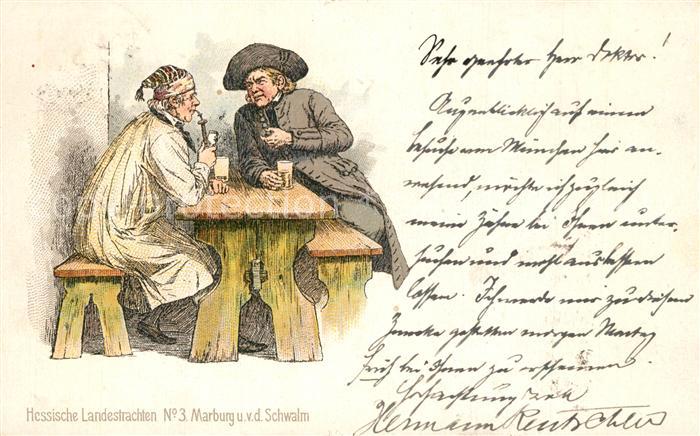 Sehr geehrter Herr Doktor!
Augenblicklich auf einem
Besuche von München hier an-
wesend, möchte ich zugleich
meine Zähne bei Ihnen unter-
suchen und wohl ausbessern
lassen. Ich werde mir zu diesem
Zwecke gestatten morgen Montag
früh bei Ihnen zu erscheinen.
Hochachtungsvoll
Hermann
Hessische Landestrachten No 3. Marburg u. v. d. Schwalm